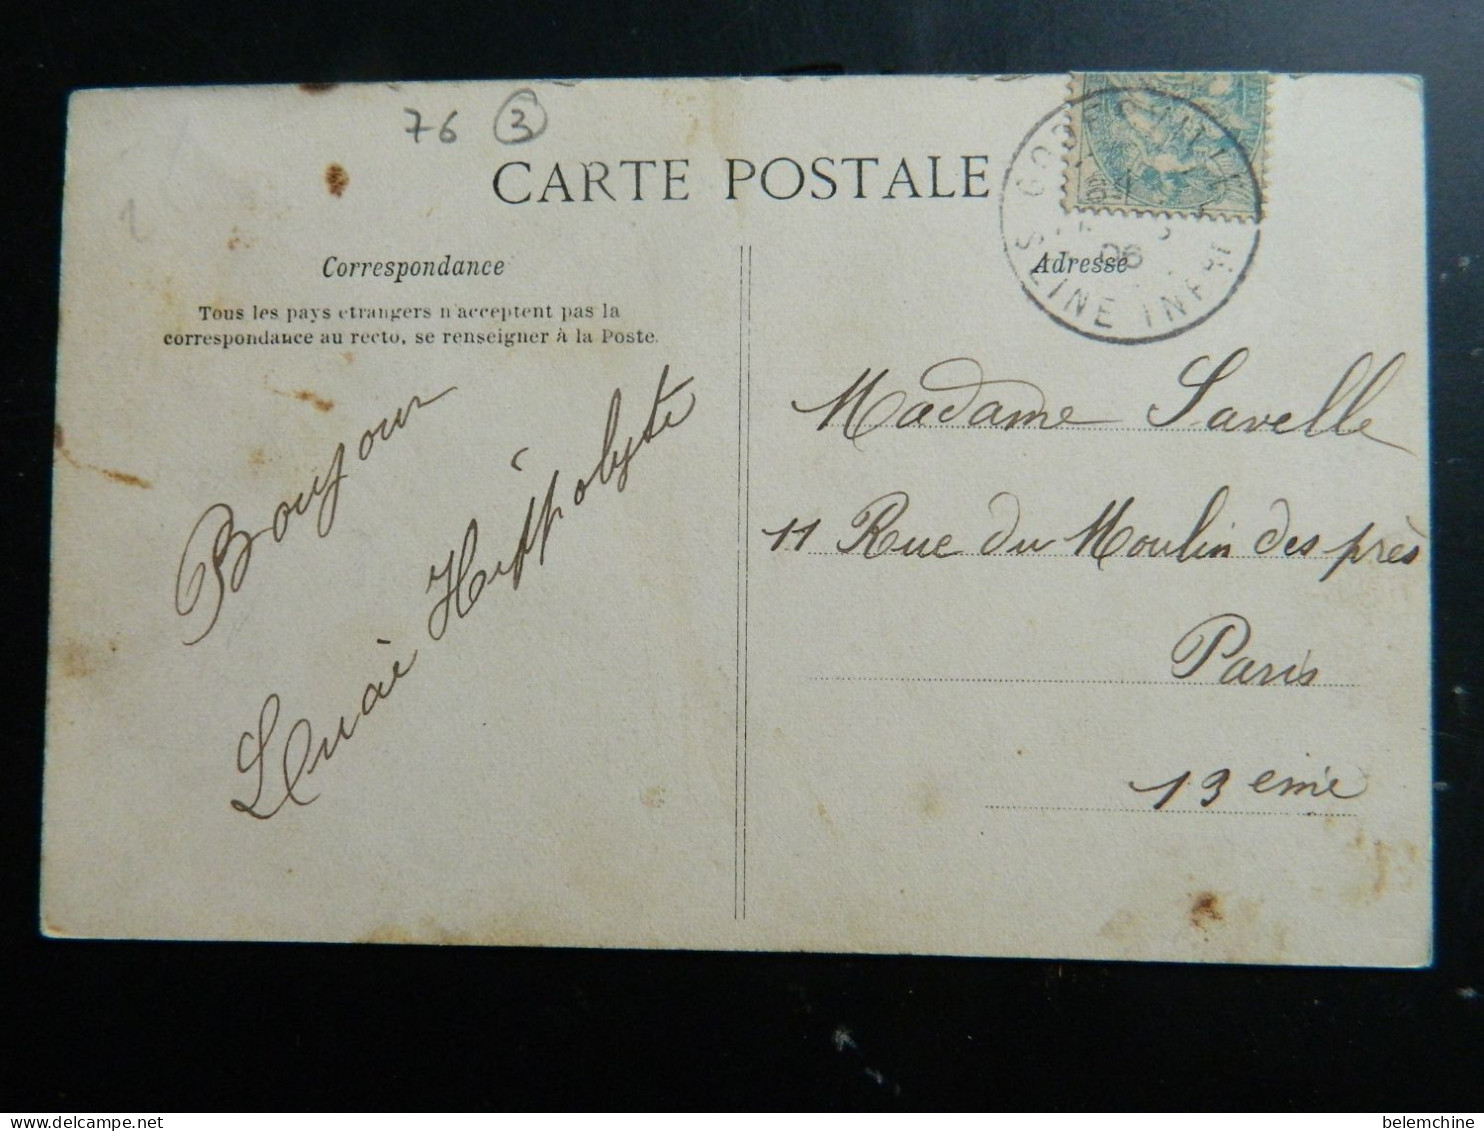 76 3
CARTE POSTALE
Correspondance
Tous les pays etrangers n'acceptent pas la
correspondance au recto, se renseigner à la Poste.
Bonjour
Hippolyte
Adresse
06
SEINE INFRE
Madame Savelle
11 Rue du Moulin des près
Paris
13 eme
belemchine